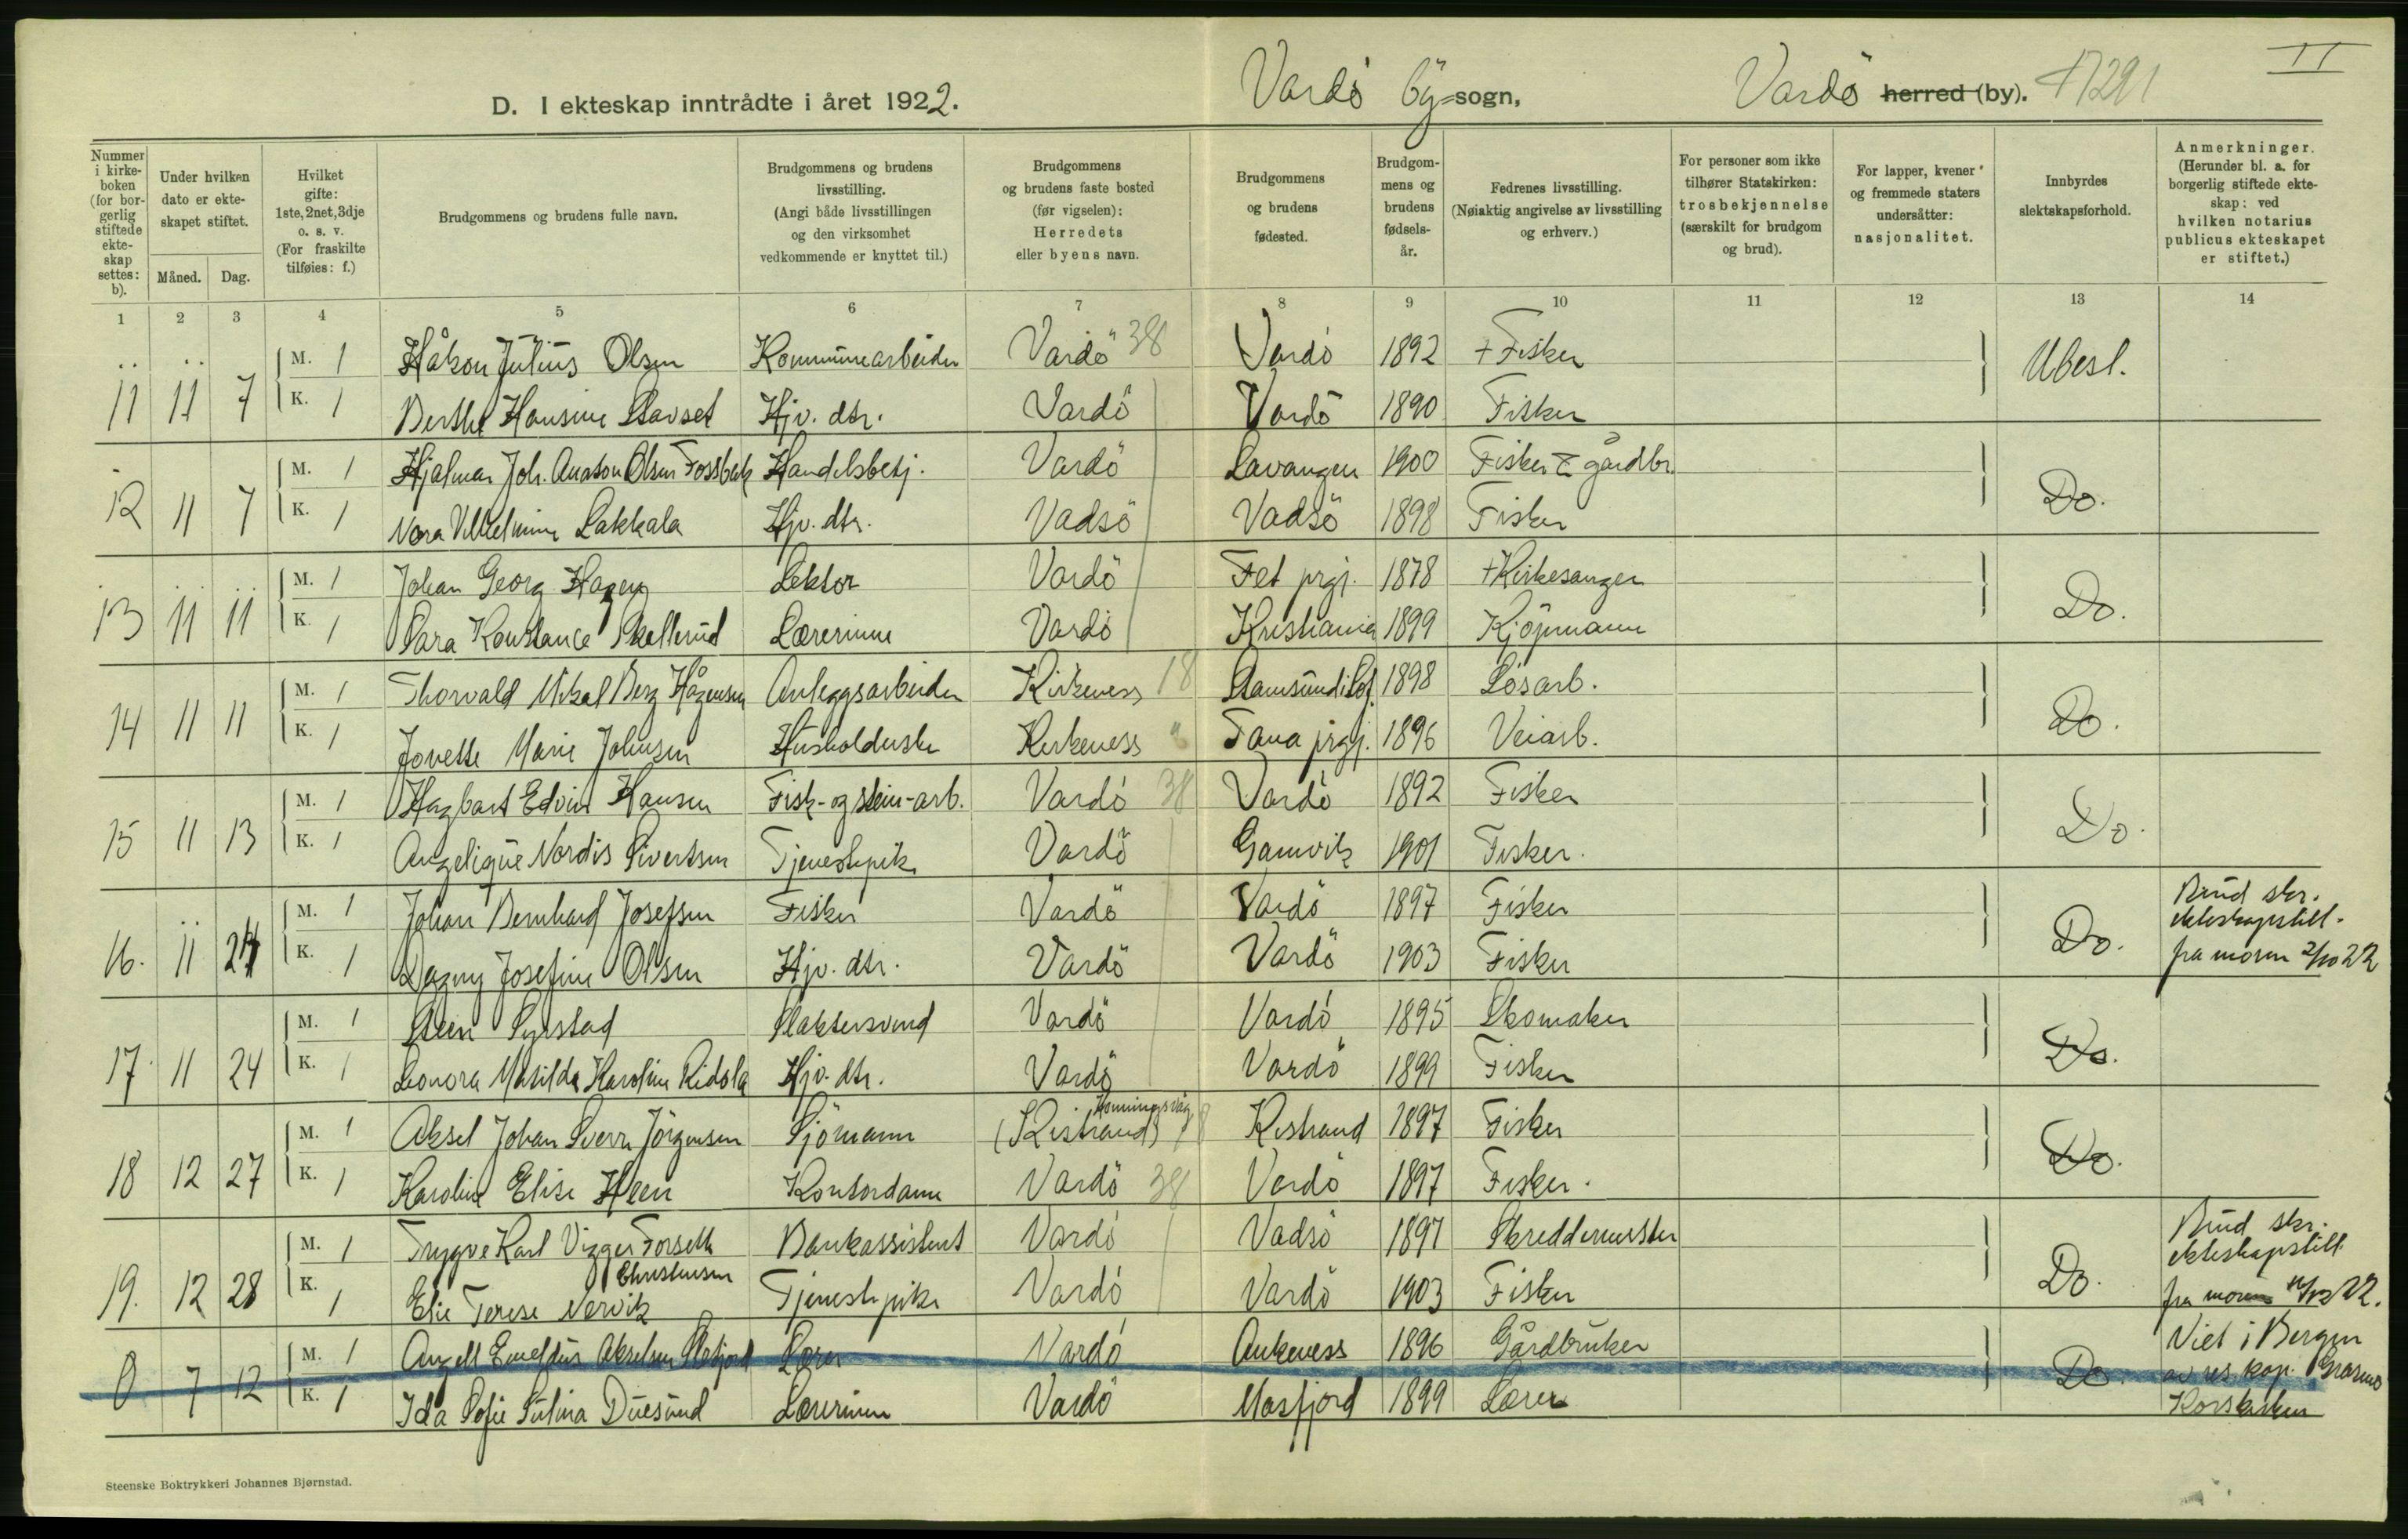 II
D. I ekteskap inntrådte i året 1922. Vardö by sogn, Vardö herred (by).
Nummer i kirkeboken (for borgerlig stiftede ekteskap settes: b).
Under hvilken dato er ekteskapet stiftet.
Måned. Dag.
Hvilket gifte: 1ste, 2net, 3dje o. s. v. (For fraskilte tilføies: f.)
Brudgommens og brudens fulle navn.
Brudgommens og brudens livsstilling. (Angi både livsstillingen og den virksomhet vedkommende er knyttet til.)
Brudgommens og brudens faste bosted (før vigselen): Herredets eller byens navn.
Brudgommens og brudens fødested.
Brudgommens og brudens fødselsår.
Fedrenes livsstilling. (Nøiaktig angivelse av livsstilling og erhverv.)
For personer som ikke tilhører Statskirken: trosbekjennelse (særskilt for brudgom og brud).
For lapper, kvener og fremmede staters undersåtter: nasjonalitet.
Innbyrdes slektskapsforhold.
Anmerkninger. (Herunder bl. a. for borgerlig stiftede ekteskap: ved hvilken notarius publicus ekteskapet er stiftet.)
1 2 3 4 5 6 7 8 9 10 11 12 13 14
M. 1 Håkon Julius Olsen Kommunearbeider Vardö 38 Vardö 1892 + Fisker Ubesl.
11 11 7 K. 1 Berthe Hansine Stavset Hjv. dtr. Vardö Vardö 1890 Fisker
M. 1 Hjalmar Joh. Olsen Fossbak Handelsbetj. Vardö Lavangen 1900 Fisker & gårdbr.
12 11 7 K. 1 Nora Vilhelmine Lakkala Hjv. dtr. Vadsö Vadsö 1898 Fisker Do.
M. 1 Johan Georg Hagen Lektor Vardö Fet prgj. 1878 + Kirkesanger
13 11 11 K. 1 Sara Konstance Skellerud Lærerinne Vardö Kristiania 1899 Kjöpmann Do.
M. 1 Thorvald Mikal Berg Hågensen Anleggsarbeider Kirkenes 18 Stamsund i Lof. 1898 Lösarb.
14 11 11 K. 1 Jonette Marie Johnsen Husholderske Kirkeness Tana prgj. 1896 Veiarb. Do.
M. 1 Hagbart Edvin Hansen Fisk- og stein-arb. Vardö 38 Vardö 1892 Fisker
15 11 13 K. 1 Angelique Nordis Sivertsen Tjenestepike Vardö Gamvik 1901 Fisker. Do.
M. 1 Johan Bernhard Josefsen Fisker Vardö Vardö 1897 Fisker Brud skr. ekteskapstill.
16. 11 24 K. 1 Dagny Josefine Olsen Hjv. dtr. Vardö Vardö 1903 Fisker Do. fra moren 2/10 22
M. 1 Steen Syrstad Slaktersvend Vardö Vardö 1895 Skomaker
17 11 24 K. 1 Leonora Matilde Karoline Ridola Hjv. dtr. Vardö Vardö 1899 Fisker Do.
M. 1 Aksel Johan Sverre Jörgensen Sjömann Honningsvåg (Kistrand) Kistrand 1897 Fisker
18 12 27 K. 1 Karoline Elise Heen Kontordame Vardö 38 Vardö 1897 Fisker. Do.
M. 1 Trygve Karl Vigger Forseth Bankassistent Vardö Vadsö 1897 Skreddermester Brud skr. ekteskapstill.
19. 12 28 K. 1 Elie Terese Nervik Christensen Tjenestepike Vardö Vardö 1903 Fisker Do. fra moren 22.
M. 1 Angell Emeldus Akselsen Lærer Vardö Ankeness 1896 Gårdbruker Viet i Bergen
0 7 12 K. 1 Ida Sofie Sulina Duesund Lærerinne Vardö Masfjord 1899 Lærer Do. av res. kap. Korskirken
Steenske Boktrykkeri Johannes Bjørnstad.